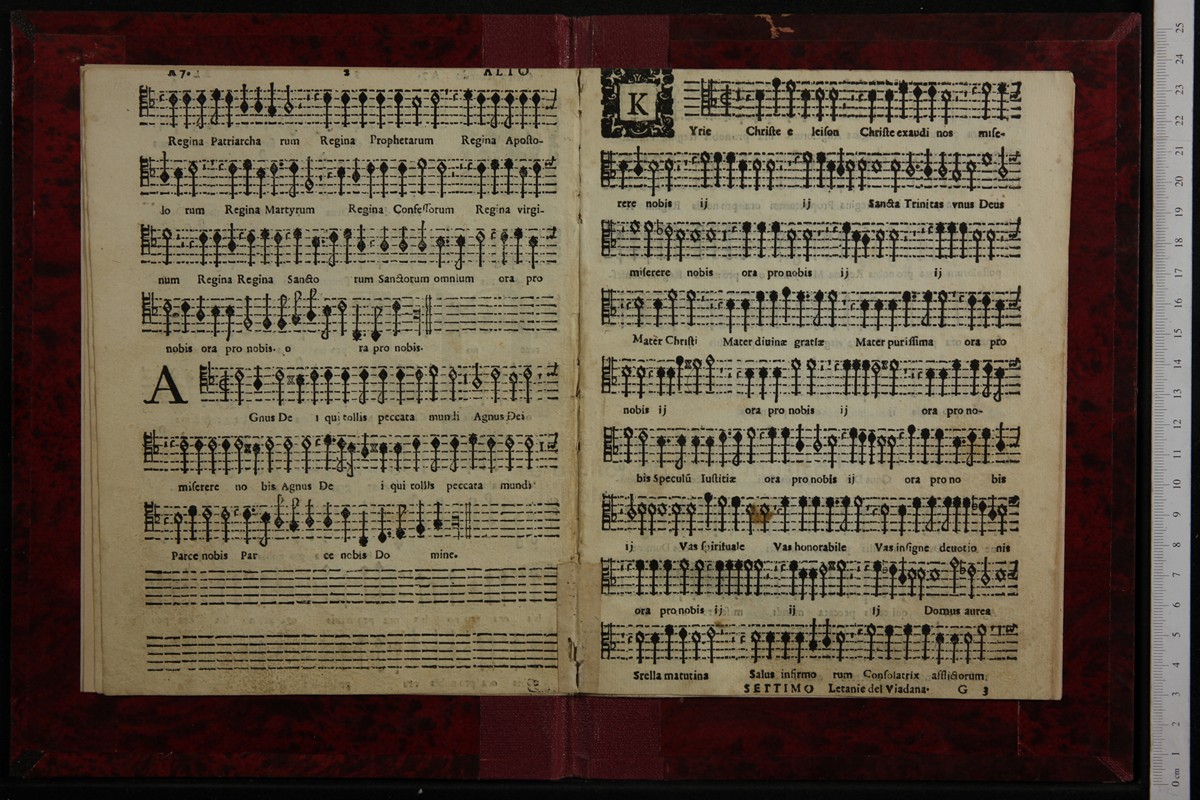 A 7. 2 ALTO
Regina Patriarcha rum Regina Prophetarum Regina Aposto-
lo rum Regina Martyrum Regina Confessorum Regina virgi-
num Regina Regina Sancto rum Sanctorum omnium ora pro
nobis ora pro nobis. o ra pro nobis.
A
Gnus De i qui tollis peccata mundi Agnus Dei
miserere no bis Agnus De i qui tollis peccata mundi
Parce nobis Par ce nobis Do mine.
K
Yrie Christe e leison Christe exaudi nos mise-
rere nobis ij ij Sancta Trinitas vnus Deus
miserere nobis ora pro nobis ij ij
Mater Christi Mater diuinæ gratiæ Mater purissima ora pro
nobis ij ora pro nobis ij ora pro no-
bis Speculũ Iustitiæ ora pro nobis ij ora pro no bis
ij Vas spirituale Vas honorabile Vas insigne deuotio nis
ora pro nobis ij ij ij Domus aurea
Stella matutina Salus infirmo rum Consolatrix afflictorum
SETTIMO Letanie del Viadana. G 3
25
24
23
22
21
20
19
18
17
16
15
14
13
12
11
10
9
8
7
6
5
4
3
2
1
0 cm